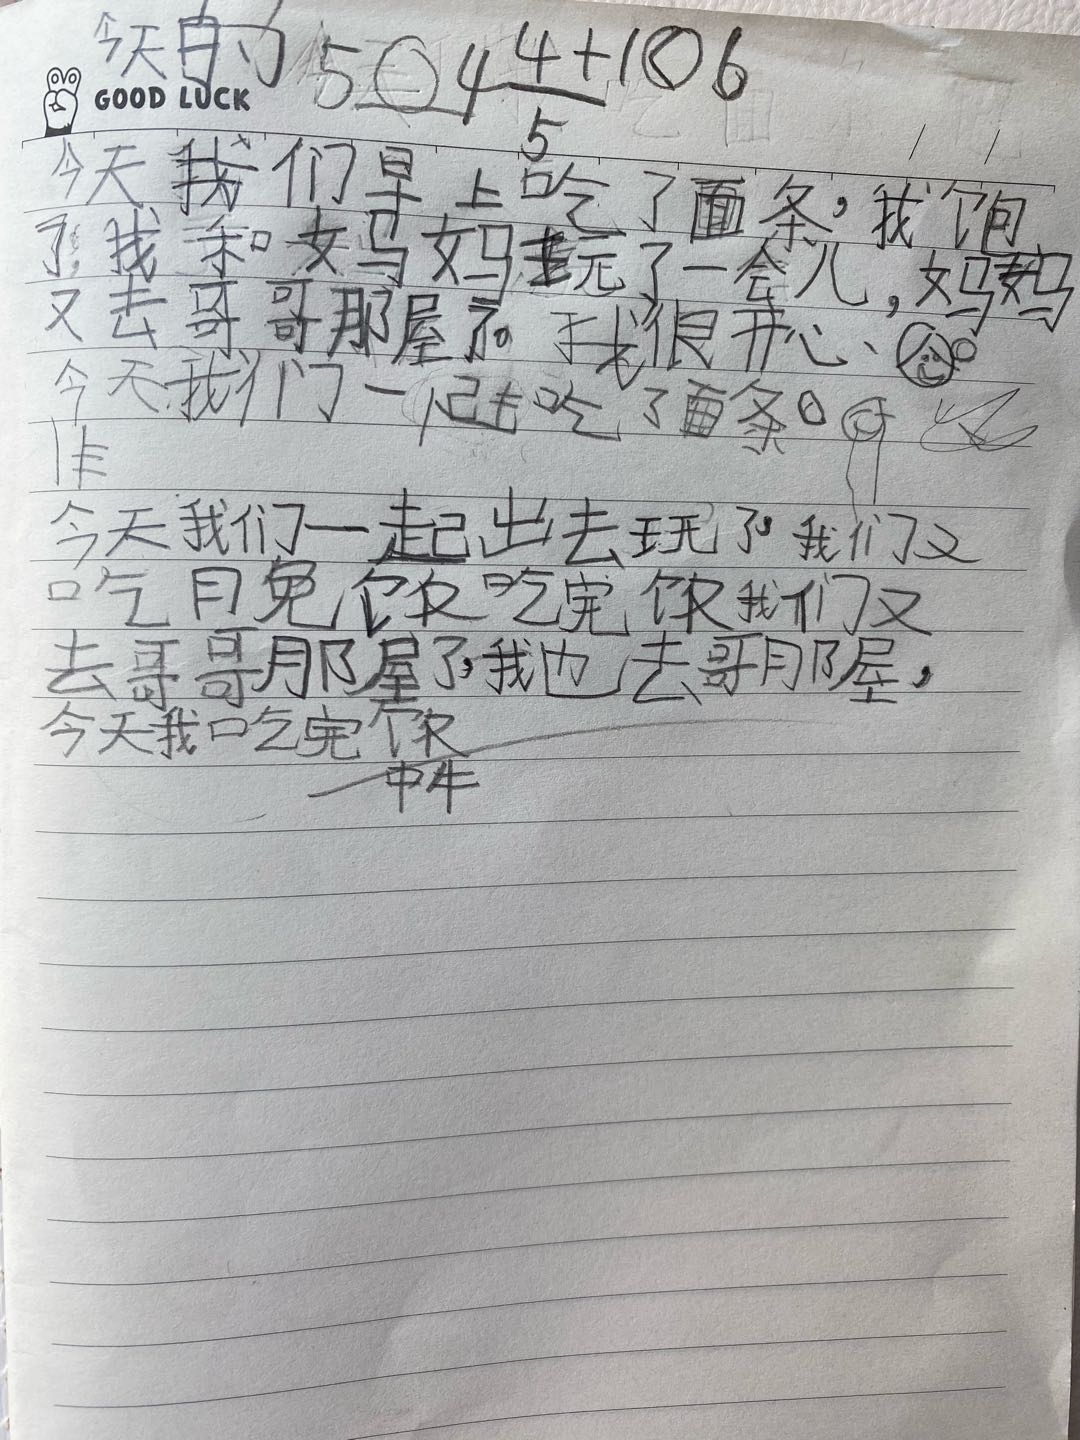 今天的 504 4+106
GOOD LUCK
5
今天我们早上吃了面条，我饱
了，我和妈妈玩了一会儿，妈妈
又去哥哥那屋了。我很开心、
今天我们一起吃了面条。
今天我们一起出去玩了，我们又
吃晚饭吃完饭我们又
去哥哥那屋了，我也去哥那屋，
今天我吃完饭